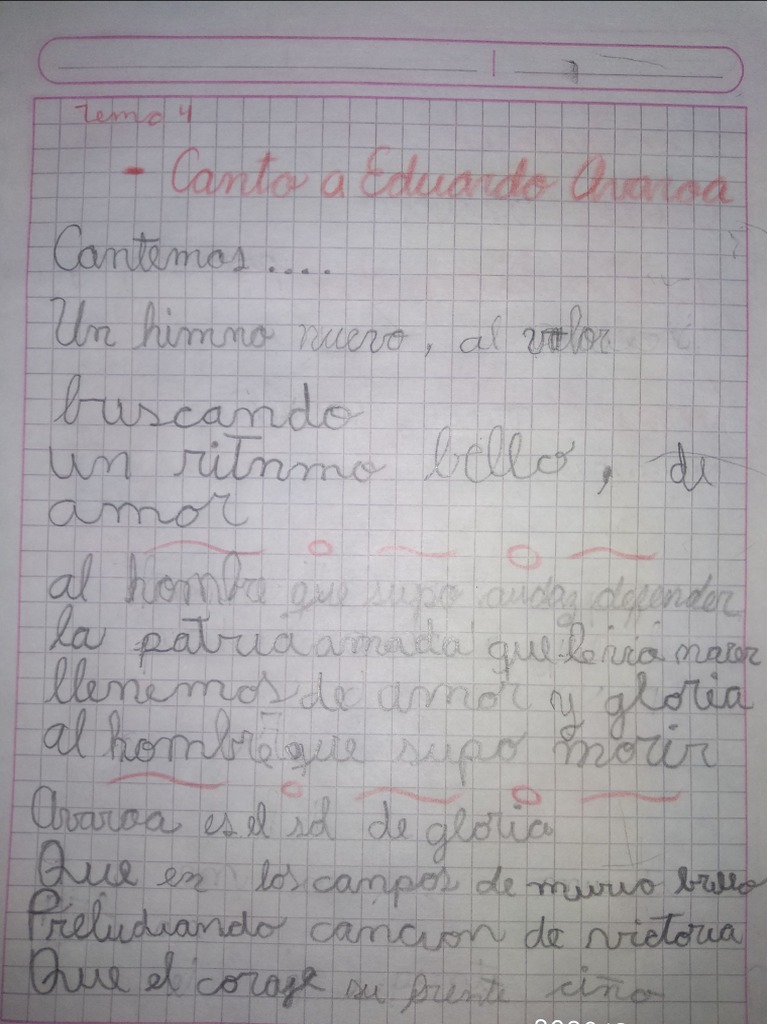 Tema 4
- Canto a Eduardo Avaroa
Cantemos....
Un himno nuevo, al valor
buscando
un ritnmo bello, de
amor
al hombre que supo audaz defender
la patria amada que le vió nacer
llenemos de amor y gloria
al hombre que supo morir
Avaroa es el sol de gloria
Que en los campos de murio brillo
Preludiando cancion de victoria
Que el corage su frente ciño